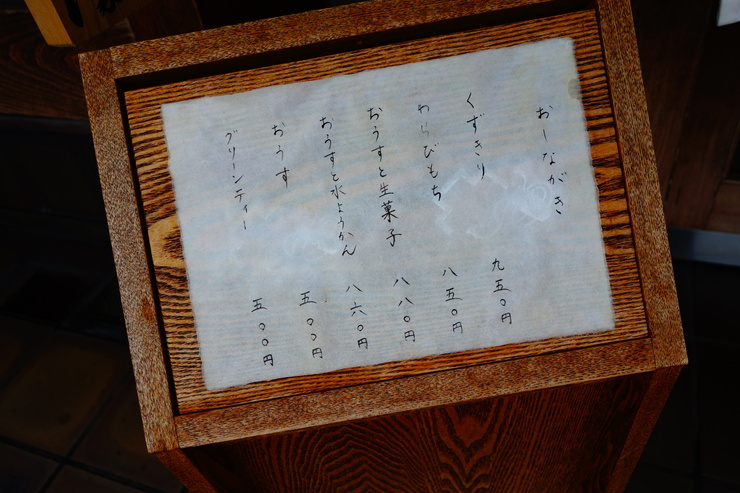 おーながき
くずきり 九五〇円
わらびもち 八五〇円
おうすと生菓子 八八〇円
おうすと水ようかん 八六〇円
おうす 五〇〇円
グリーンティー 五〇〇円